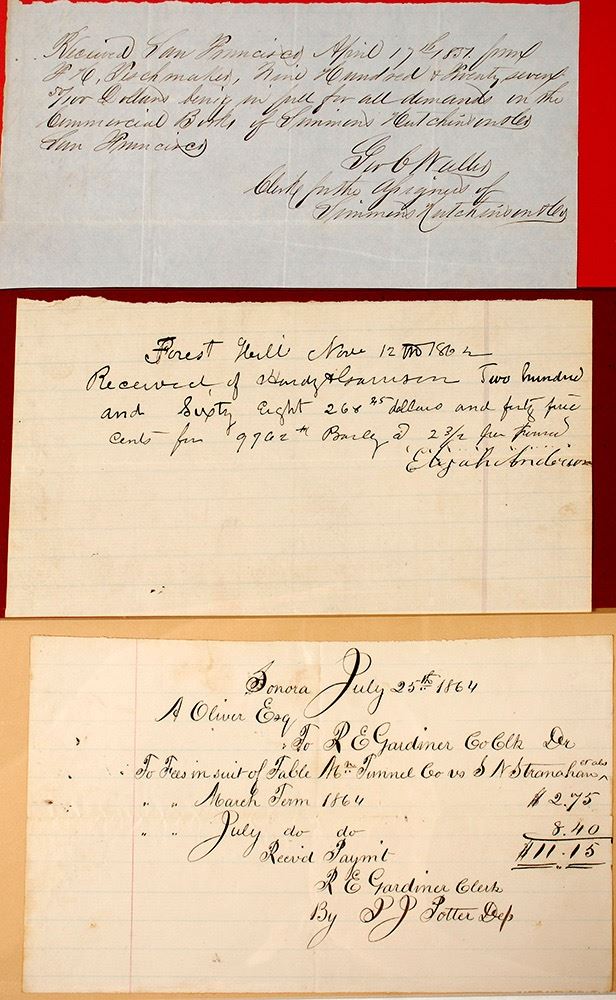 Received San Francisco April 17th 1851 from
Nine Hundred & Twenty seven
57/100 Dollars being in full for all demands on the
Commercial Books of Simmons Hutchinson & Co
San Francisco
Geo C Waller
Clerk for the Assignees of
Simmons Hutchinson & Co
Forest Hill Nov 12th 1862
Received of Hardy & Garrison Two hundred
and Sixty Eight 268 45 dollars and forty five
cents for 9962 lb Barley @ 2 3/4 per Pound
Elijah Anderson
Sonora July 25th 1864
A Oliver Esq
To R E Gardiner Co Clk Dr
To Fees in suit of Table Mtn Tunnel Co vs S N Stranahan et als
" " March Term 1864 $ 2.75
" " July do do 8.40
Recv'd Paym't $11.15
R E Gardiner Clerk
By P J Potter Dep